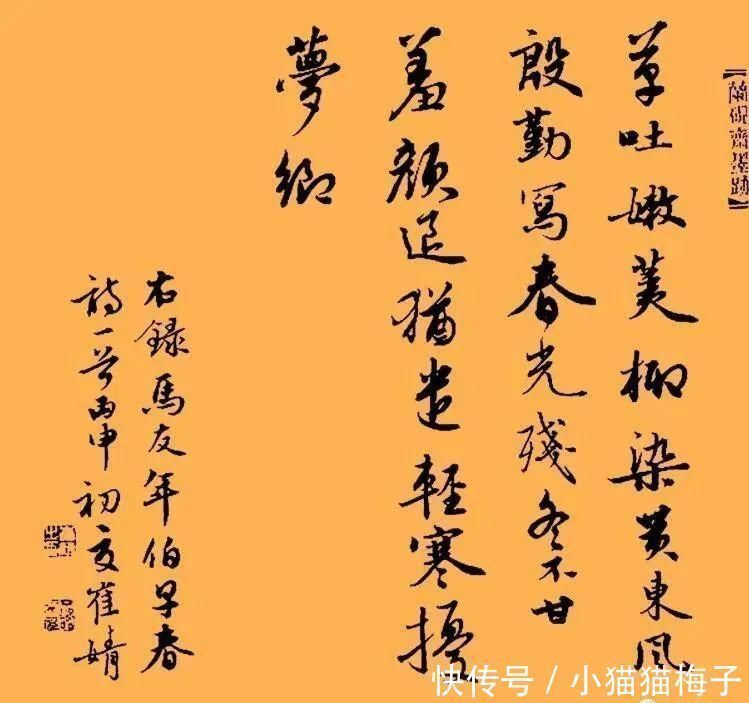 蘭硯齋墨跡
草吐嫩荑柳染黄東風
殷勤寫春光殘冬不甘
羞顏退猶遣輕寒擾
夢鄉
右錄馬友年伯早春
詩一首丙申初夏崔婧
快传号 / 小猫猫梅子